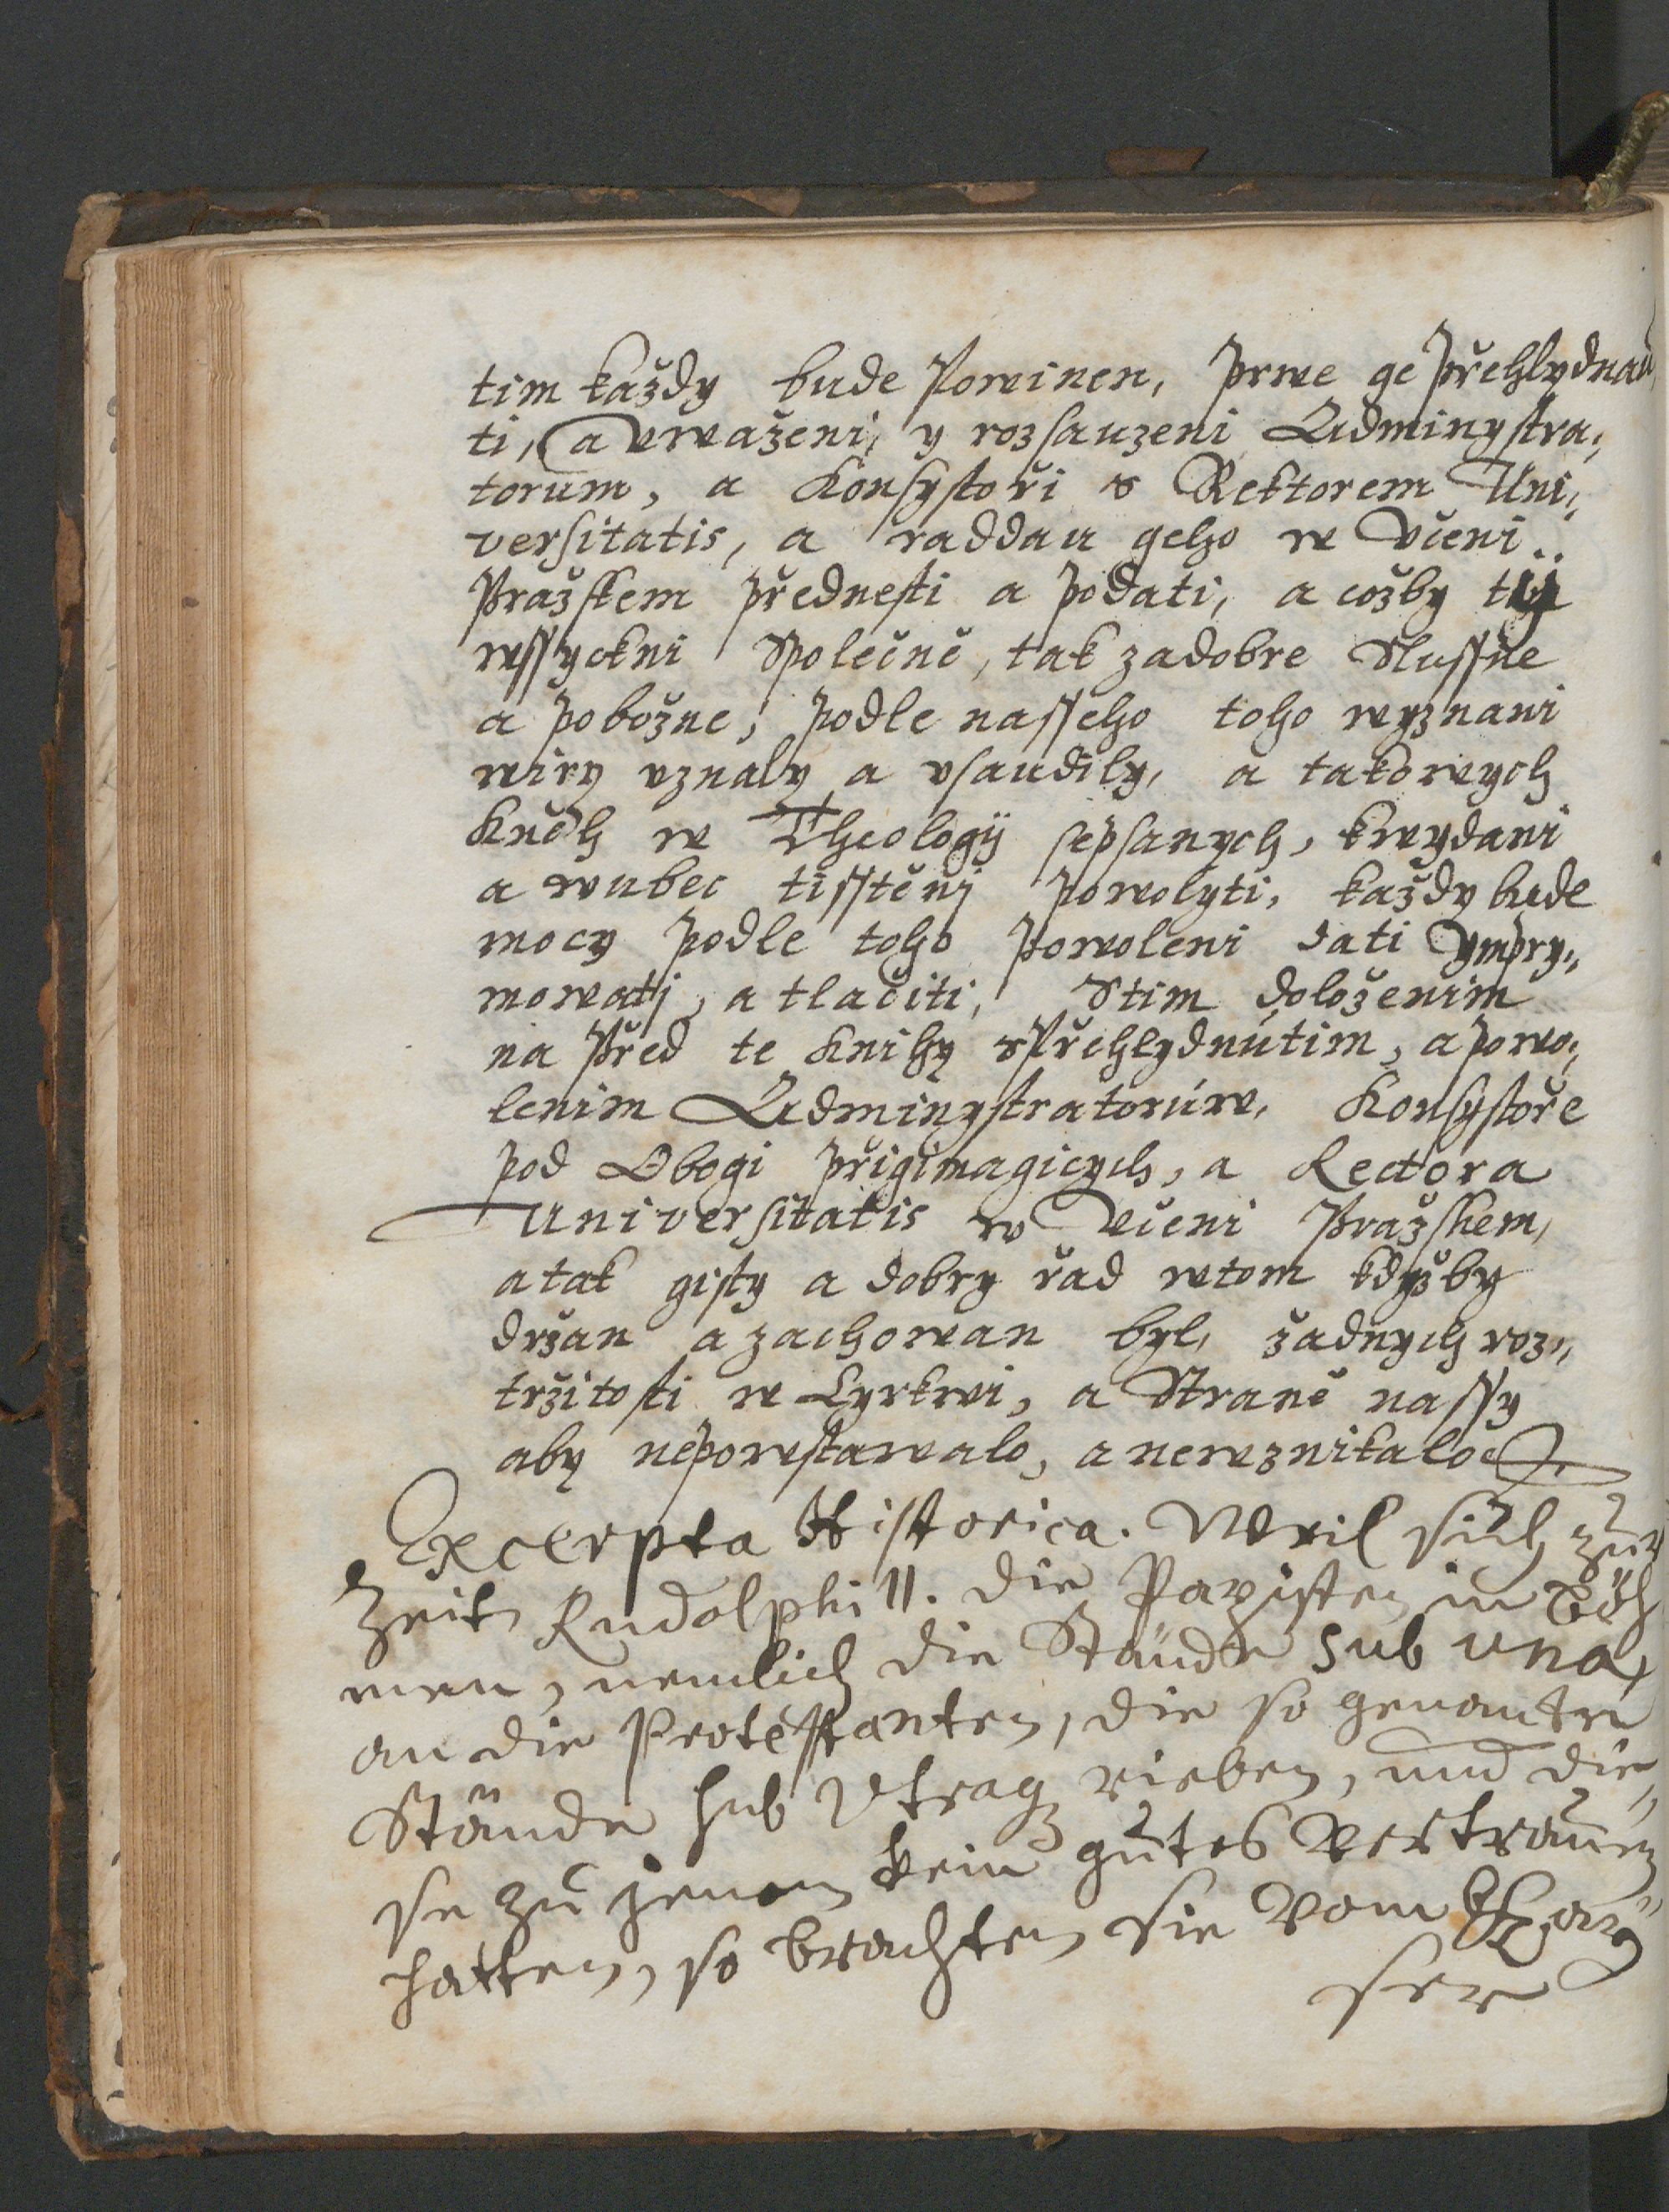 tim každy bude Powinen, prwe ge přehlydnau,
ti, a vwaženi, y rozsauzeni Administra,
torum, a Konsystoři s Rektorem Uni,
versitatis, a raddau geho w Včeni..
Pražskem přednesti a podati, a cožby tij
wssyckni Společně, tak zadobre Slussne
a pobožne, podle nasseho toho wyznani
wiry vznaly a vsaudily, a takowych
Kněh w Theologij sepsanych, kwydani
a wubec tisstěnj powolyti, každy bude
mocy podle toho powoleni dati ympry,,
mowatj, a tlačiti, Stim doloženim
na Před te Knihy sPřehlydnútim, a powo,,
lenim Administratorúw, Konsystoře
pod Obogi přigimagicych, a Rectora
Universitatis w Včeni Pražskem,
a tak gisty a dobry řad wtom kdyžby
držan a zachowan byl, žadnych roz,,
tržitosti w Cyrkwi, a Straně nassy
aby nepowstawalo, a newznikalo
Excerpta Historica. Weil sich zur
Zeit Rudolphi II. die Papisten in Böh
men, nemlich die Stände sub una,
an die Protestanten, die so genanten
Stände sub Utraq rieben, und die,,
se zu jenen kein gutes Vertrauen
hatten, so brachten sie vom Kay,,
ser